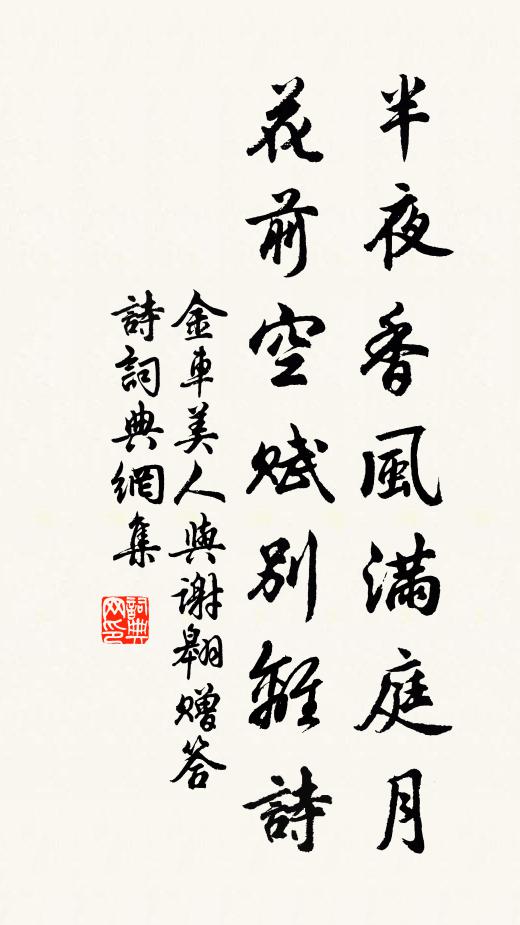 半夜香風滿庭月
花前空賦別離詩
金車美人與謝翱贈答
詩詞典網集
詞典網印